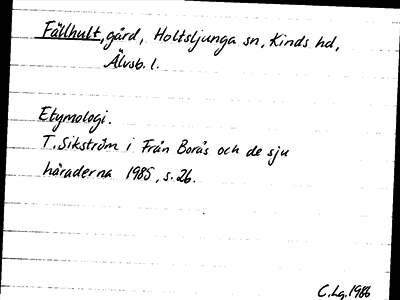 Fällhult, gård, Holtsljunga sn, Kinds hd,
Älvsb. l.
Etymologi.
T. Sikström i Från Borås och de sju
häraderna 1985, s. 26.
C. Lg. 1986